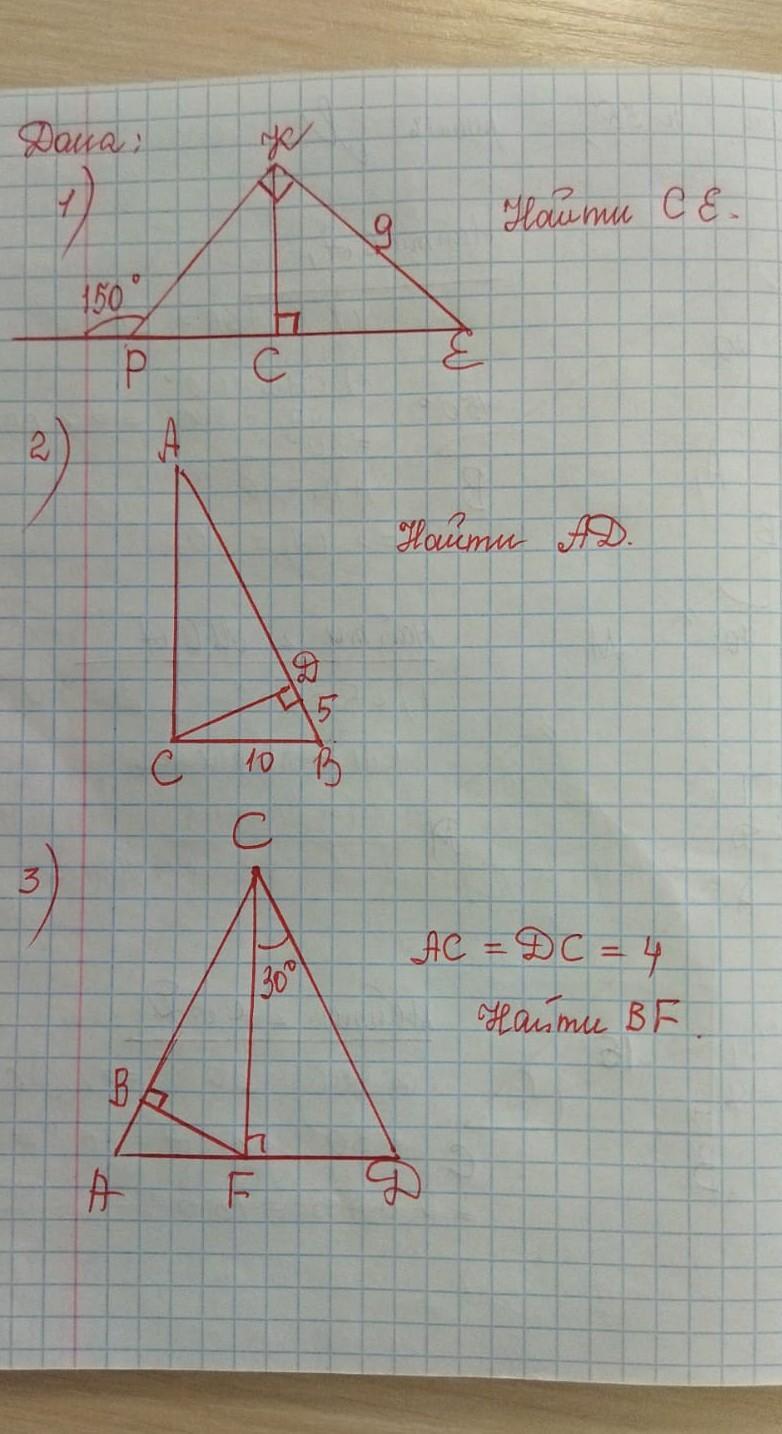 Дано:
1)
K
9
150°
P
C
E
Найти CE.
2)
A
D
5
C
10
B
Найти AD.
3)
C
30°
B
A
F
D
AC = DC = 4
Найти BF.